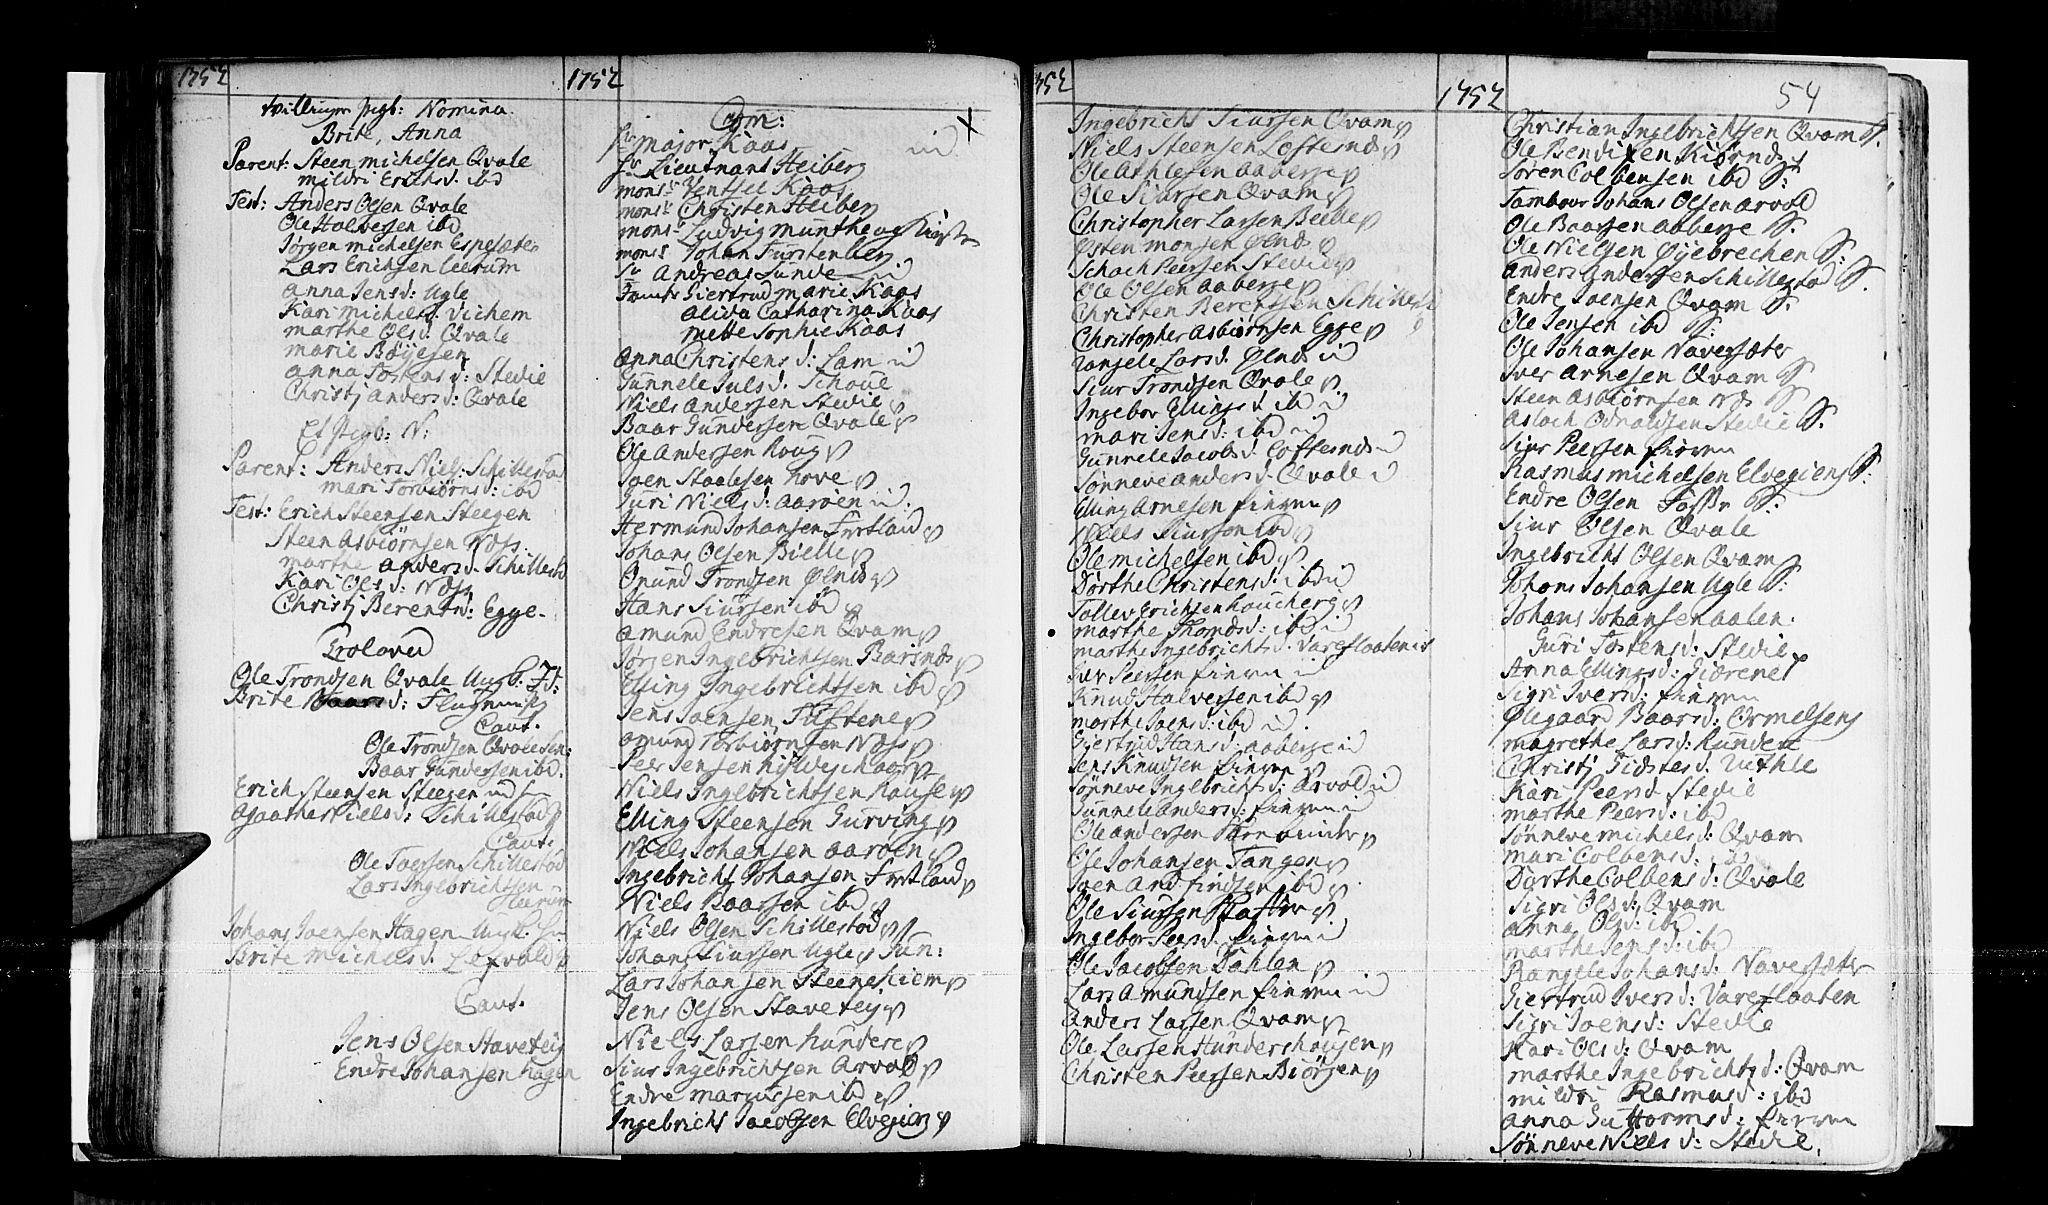 1752
tvillinger pigb: Nomina
Brite, Anna
Parent: Steen Michelsen Qvale
Mildri Erichsd. ibd
Test: Anders Olsen Qvale
Ole Halversen ibd
Jørgen Michelsen Espesæter
Lars Erichsen Leerum
Anna Jensd: Ugle
Kari Michelsd. Vichem
Marthe Olsd: Qvale
Marie Bøyesen
Anna Tostensd: Stedie
Christj Andersd: Qvale
Et pigb: N:
Parent: Anders Niels: Schillestad
Mari Torbiørnsd: ibd
Test: Erich Steensen Steegen
Steen Asbiørnsen Næss
Marthe Andersd. Schillestd
Kari Olsd: Næss
Christj Berentsd: Egge
Trolover
Ole Trondsen Qvale
Brite Flugem
Caut.
Ole Trondsen Qvale Sen:
Baar Gundersen ibd.
Erich Steensen Steegen
Agaathe Nielsd: Schillestad
Caut.
Ole Schillestad
Lars Ingebrichtsen
Leerum
Johans Joensen Hagen
Brite Michelsd.
Caut.
Jens Olsen Staveteig
Endre Johansen Hagen
1752
Com:
Hr Major Kaas
Hr Lieutnant Heiberg
Monsr Ventsel Kaas
Monsr Christen Heiberg
Monsr Ludvig Munthe og
Monsr Johan Furstenberg
Sr Andreas Lunde
Giertrud Marie Kaas
Alida Catharina Kaas
Mette Sophie Kaas
Anna Christensd: Lam
Gunnele Julsd. Schoue
Niels Andersen Stedie
Baar Gundersen Qvale
Ole Andersen Roug
Joen Staalesen Hove
Guri Nielsd: Aarøen
Hermund Johansen Frtland
Johans Olsen Bielle
Onund Trondsen Ølnes
Hans Siursen ibd
Amund Endresen Qvam
Jørgen Ingebrichtsen Barsnes
Elling Ingebrichtsen ibd
Jens Joensen Tufstene
Amund Torbiørnsen Næss
Peer Jensen
Niels Ingebrichtsen
Elling Steensen Gurving
Niels Johansen Aarøen
Ingebricht Johansen Frtland
Niels Baarsen ibd
Niels Olsen Schillestad
Johans Siursen Ugle Jun:
Lars Johansen Steenehiem
Jens Olsen Staveteig
Niels Larsen Hundere
Siur Ingebrichtsen Arvold
Endre Mariussen ibd
Ingebricht Jacobsen Elvegien
1752
Ingebricht Siursen Qvam
Niels Steensen Loftesnes
Ole Athlesen Aaberge
Ole Siursen Qvam
Christopher Larsen Bielle
Østen Monsen Ølnes
Schach Peersen Stedie
Ole Olsen Aaberge
Christen Berentsen Schillest
Christopher Asbiørnsen Egge
Rangele Larsd. Ølnes
Siur Trondsen Qvale
Ingebor Ellingsd ibd
Mari Jensd: ibd
Gunnele Jacobsd. Loftesnes
Sønneve Andersd. Qvale
Elling Arnesen fimren
Niels Siursen ibd
Ole Michelsen ibd
Dorthe Christensd: ibd
Tollev Erichsen
Marthe Thomdsd: ibd
Marthe Ingebrichtsd. Vareflaaten
Iver Peersen fimren
Knud Halversen ibd
Marthe Joensd: ibd
Giertrud Hansd: Aaberge
Jens Knudsen fimren
Sønneve Ingebrichtsd: Arvold
Gunnele Andersd: fimren
Ole Andersen
Ole Johansen Tangen
Joen Andfindsen ibd
Ole Siursen
Ingebor Peersd. fimren
Ole Jacobsen Dahlen
Lars Amundsen fimren
Anders Larsen Qvam
Ole Larsen Hundershougen
Christen Peersen Biørgen
1752
54
Christian Ingebrichtsen Qvam S.
Ole Bendixen Kiørnes
Søren Colbensen ibd S.
Tambour Johans Olsen Arvold
Ole Baarsen Aaberge S.
Ole Nielsen Øyebrechen S.
Anders Andersen Schillestad S.
Endre Joensen Qvam S.
Ole Jensen ibd S.
Ole Johansen Navesæter
Iver Arnesen Qvam S
Steen Asbiørnsen Næs S
Aslach Odnaldsen Stedie S.
Siur Peersen fimren
Rasmus Michelsen Elvegien S.
Endre Olsen Fosse S.
Siur Olsen Qvale
Ingebricht Olsen Qvam
Johans Johansen Ugle S.
Johans Johansen Aalen.
Guri Tostensd: Stedie
Anna Ellingsd: Giørene
Sigri Iversd: fimren
Ølegaard Baarsd: Ormelsens
Magrethe Larsd: Hundere
Christj
Kari Peersd. Stedie
Marthe Peersd: ibd
Sønneve Michelsd: Qvam
Mari Colbensd: ibd
Dorthe Colbensd: Qvale
Sigri Olsd: Qvam
Anna Olsd: ibd
Marthe Jensd: ibd
Rangele Johansd: Navesæter
Giertrud Iversd: Vareflaaten
Sigri Joensd: Stedie
Kari Olsd: Qvam
Marthe Ingebrichtsd: Qvam
Mildri Rasmusd: ibd
Anna Guttormsd: fimren
Sønneve Nielsd: Stedie.